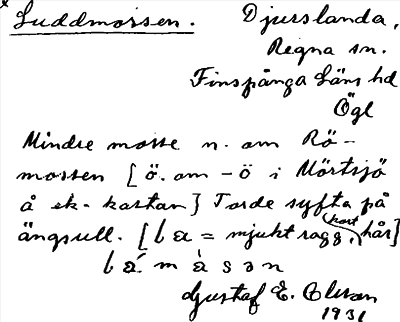 Luddmossen. Djurslanda,
Regna sn.
Finspånga läns hd
Ögl
Mindre mosse n. om Rö-
mossen [ö. om -ö i Mörtsjö
å ek. kartan] Torde syfta på
ängsull. [ = mjukt ragg, kort hår]
Gustaf E. Olsson
1931